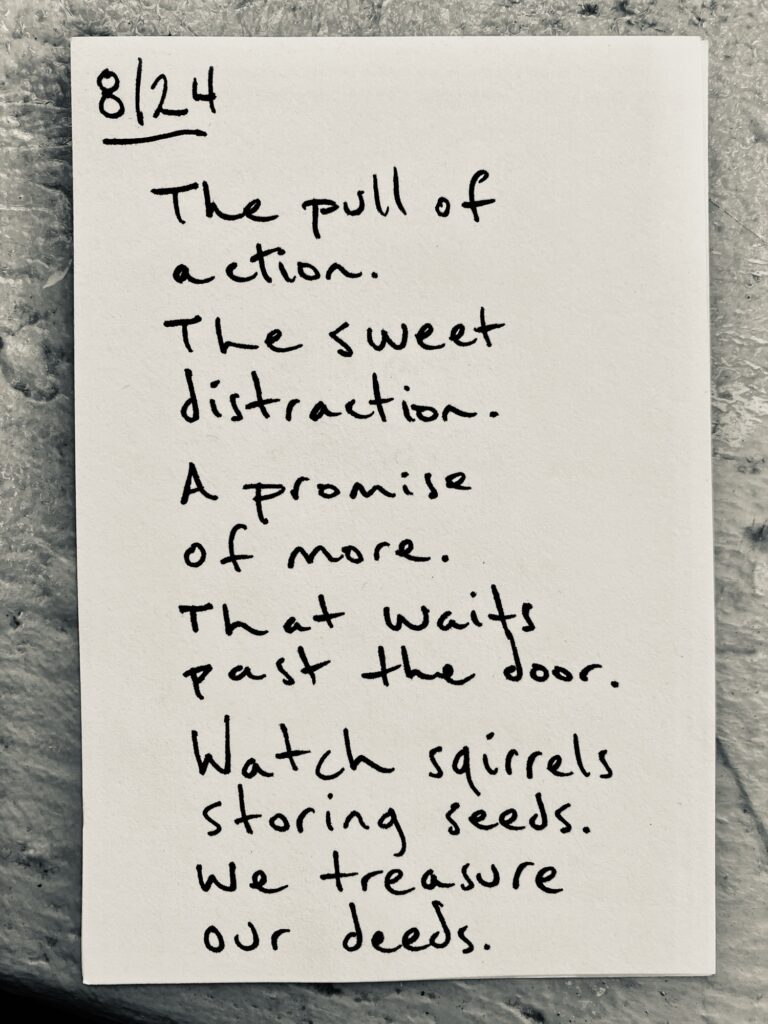 8/24
The pull of
action.
The sweet
distraction.
A promise
of more.
That waits
past the door.
Watch sqirrels
storing seeds.
We treasure
our deeds.